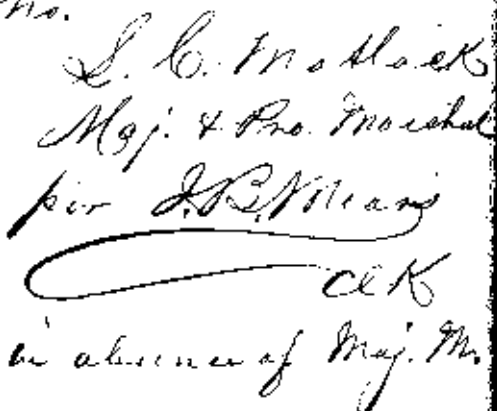 Mo.
L. C. Matlack
Maj. & Pro. Marshal
per J. B. Means
Clk
in absence of Maj. M.